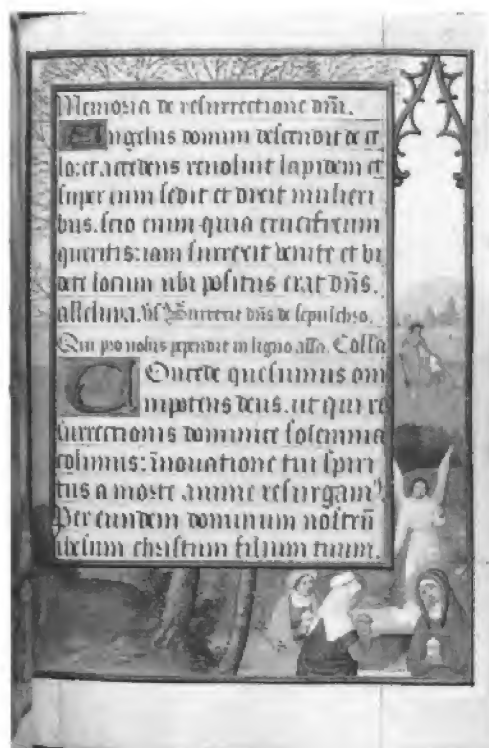 Memoria de resurrectione dñi.
Angelus domini descendit de ce
lo: et accedens reuoluit lapidem et
super eum sedit et dixit mulieri
bus. scio enim quia crucifixum
queritis: iam surrexit venite et vi
dete locum ubi positus erat dñs.
alleluya. Surrexit dñs de sepulchro.
Qui pro nobis pependit in ligno alla. Collā
Concede quesumus om
nipotens deus. ut qui re
surrectionis dominice solemnia
colimus: inouatione tui spiri
tus a morte anime resurgam'
Per eundem dominum nostrū
ihesum christum filium tuum.